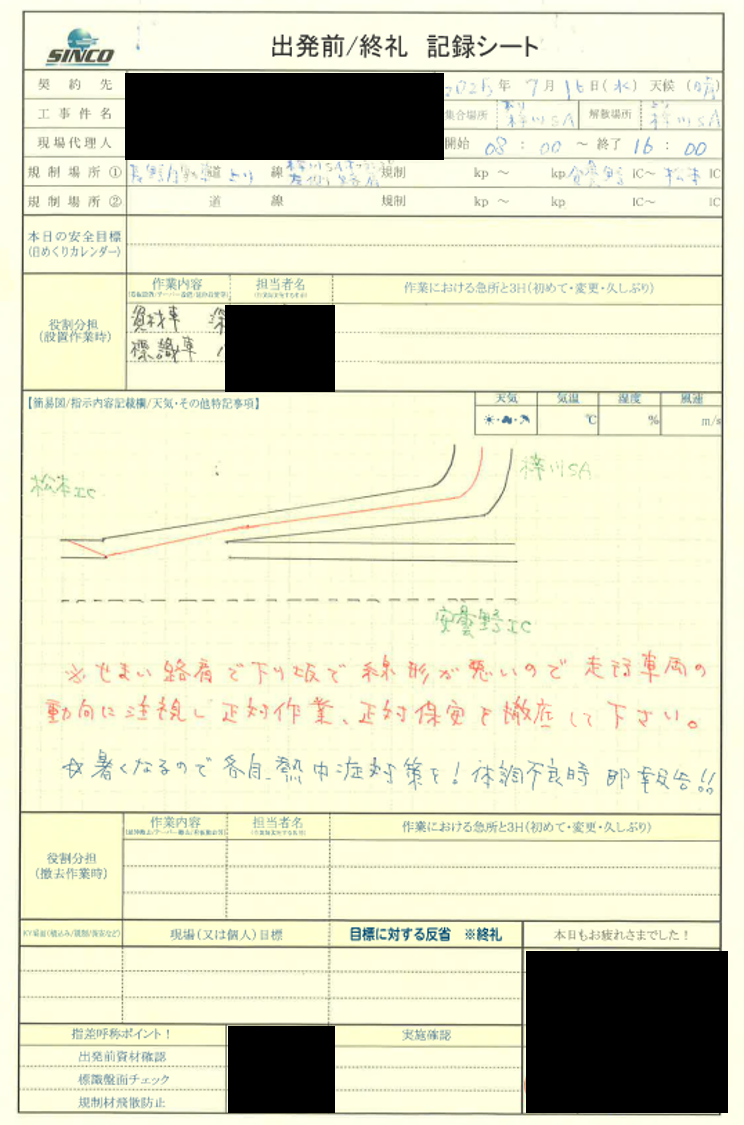 SINCO
出発前/終礼 記録シート
契約先
2025年 7月 16日(水) 天候(晴)
工事件名
集合場所 梓川SA 解散場所 梓川SA
現場代理人
開始 08:00 ～ 終了 16:00
規制場所① 長野自動車道 上り 線 路肩 規制 kp ～ kp 安曇野 IC～ 松本 IC
規制場所② 道 線 規制 kp ～ kp IC～ IC
本日の安全目標
(日めくりカレンダー)
役割分担
(設置作業時)
作業内容 担当者名 作業における急所と3H(初めて・変更・久しぶり)
資材車
標識車
【簡易図/指示内容記載欄/天気・その他特記事項】
天気 気温 湿度 風速
℃ % m/s
松本IC
梓川SA
安曇野IC
※せまい路肩で下り坂で線形が悪いので走行車両の
動向に注視し正対作業、正対保安を徹底して下さい。
☆暑くなるので各自、熱中症対策を!体調不良時 即報告!!
役割分担
(撤去作業時)
作業内容 担当者名 作業における急所と3H(初めて・変更・久しぶり)
現場(又は個人)目標 目標に対する反省 ※終礼 本日もお疲れさまでした!
指差呼称ポイント! 実施確認
出発前資材確認
標識盤面チェック
規制材飛散防止